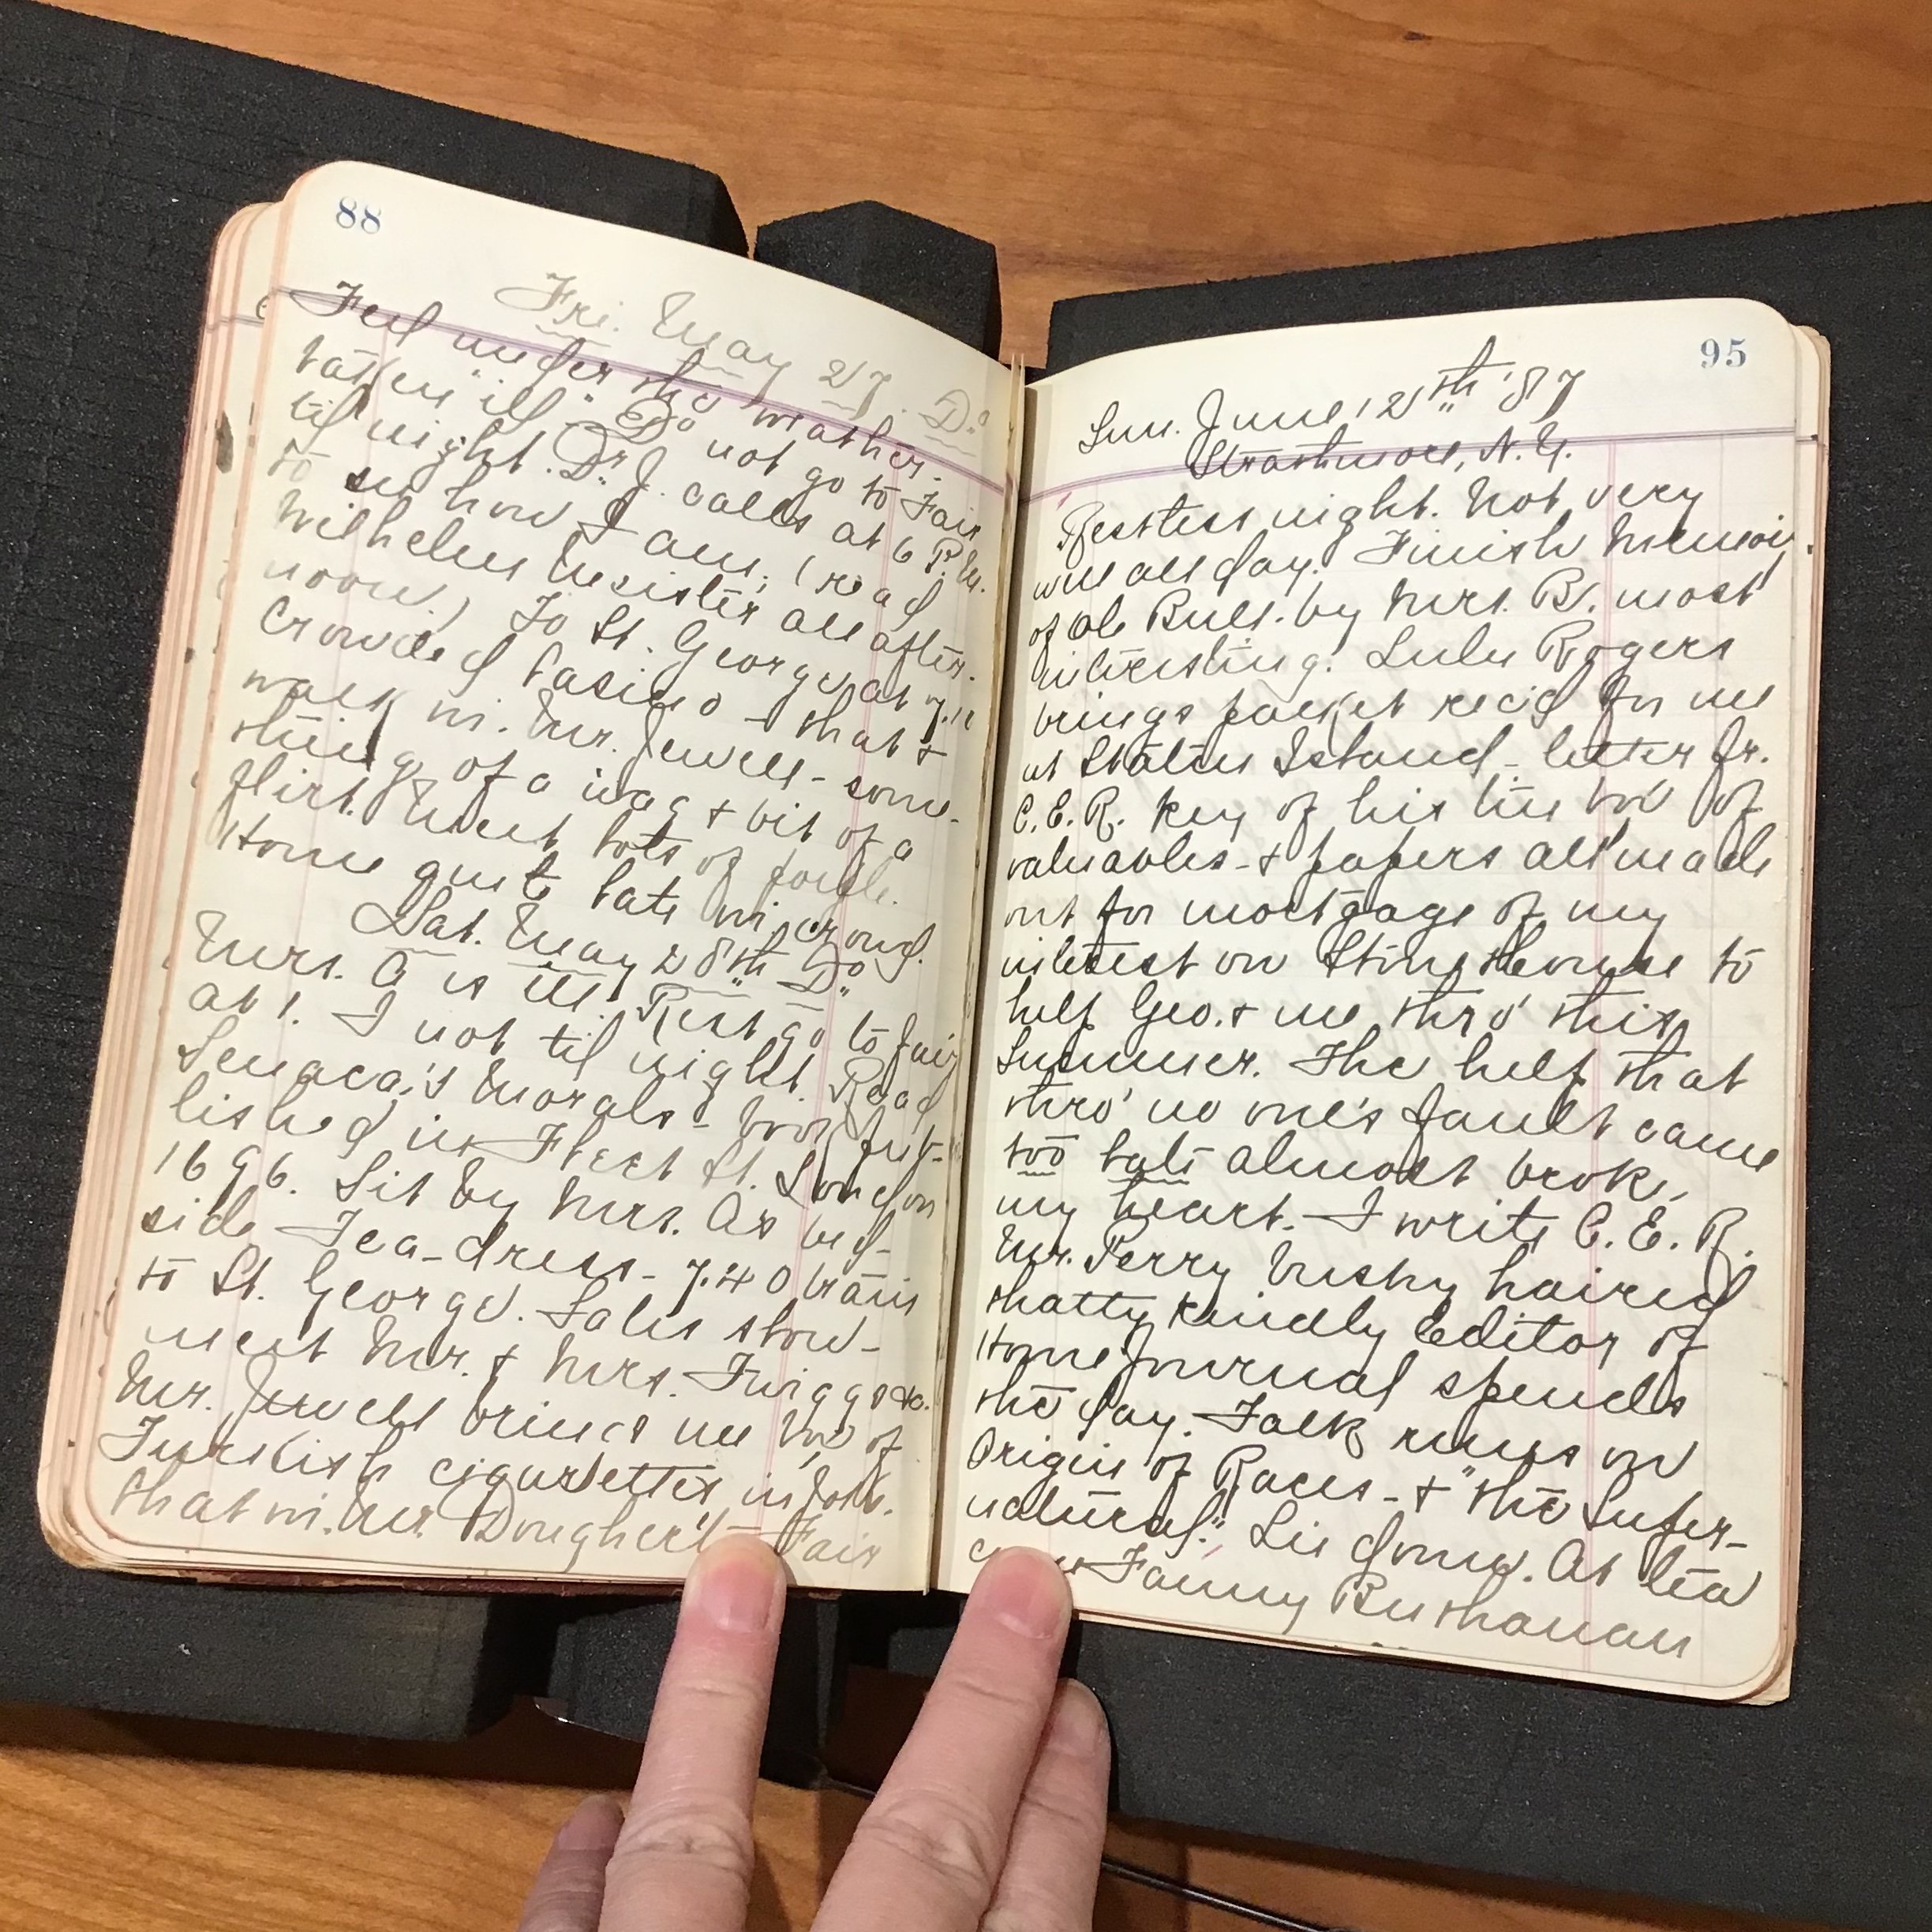 88
Fri. May 27. Do
Feel under the weather.
taken ill. Do not go to Fair
til night. Dr. J. calls at 6 P.M.
to see how I am; (read
Wilhelm Meister all after-
noon.) To St. George at 7.10
Crowded Casino - that &
walk w. Mr. Jewell - some-
thing of a wag & bit of a
flirt. Meet lots of people.
Home quite late w. crowd.
Sat. May 28th Do
Mrs. A is ill. Rest go to fair
at 1. I not til night. Read
Senaca's Morals - book pub-
lished in Fleet St. London
1696. Sit by Mrs. As bed-
side Tea-dress - 7.40 train
to St. George. Sales slow -
meet Mr. & Mrs. Twiggs &c.
Mr. Jewell brings me box of
Turkish cigarettes in joke.
that w. Mr. Dougherty Fair
95
Sun. June 12th '87
Strathmore, N.Y.
Restless night. Not very
well all day. Finish Memoir
of Ole Bull. by Mrs. B. most
interesting. Lulu Rogers
brings packet rec'd for me
at Staten Island - letter fr.
C.E.R. key of his tin box of
valuables - & papers all made
out for mortgage of my
interest on Stone House to
help Geo. & me thro' this
Summer. The help that
thro' no one's fault came
too late almost broke
my heart. I write C.E.R.
Mr. Perry bushy haired
shatty kindly Editor of
Home Journal spends
the day. Talk runs on
Origin of Races - & "the Super-
natural." Lie down. At tea
Fanny Buchanan